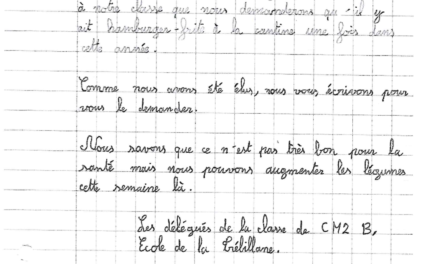 à notre classe que nous demanderons qu'il y
ait hamburger-frite à la cantine une fois dans
cette année.
Comme nous avons été élus, nous vous écrivons pour
vous le demander.
Nous savons que ce n'est pas très bon pour la
santé mais nous pouvons augmenter les légumes
cette semaine là.
Les délégués de la classe de CM2 B,
Ecole de la Trébillane.